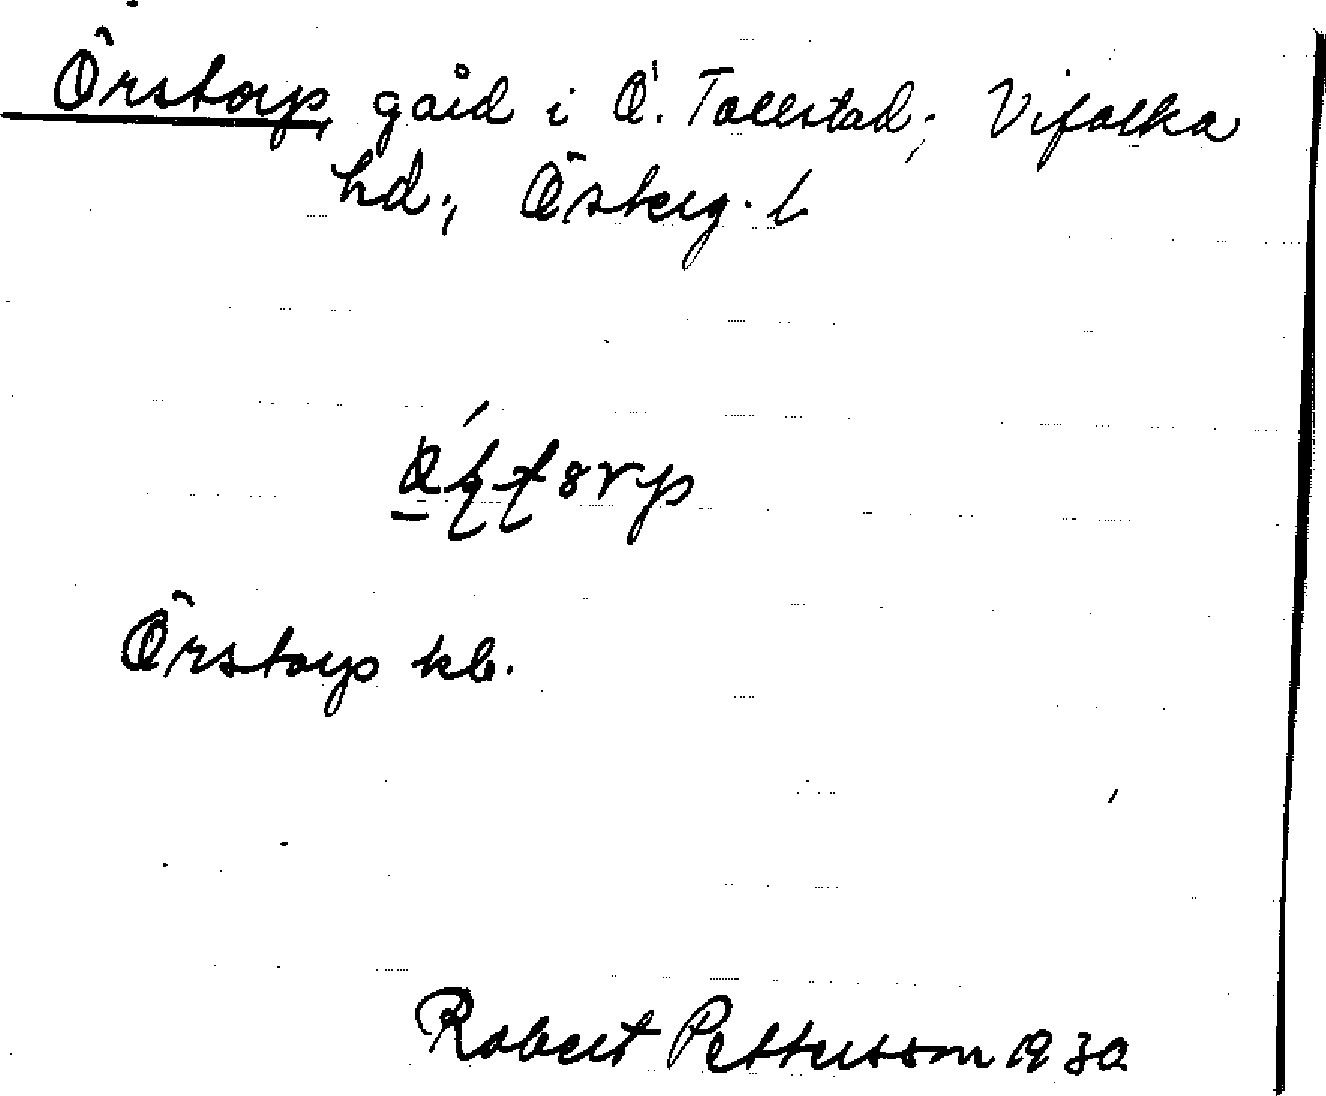 Örstorp, gård i Ö. Tollstad, Vifolka
hd., Österg. l
Örstorp kb.
Robert Pettersson 1930